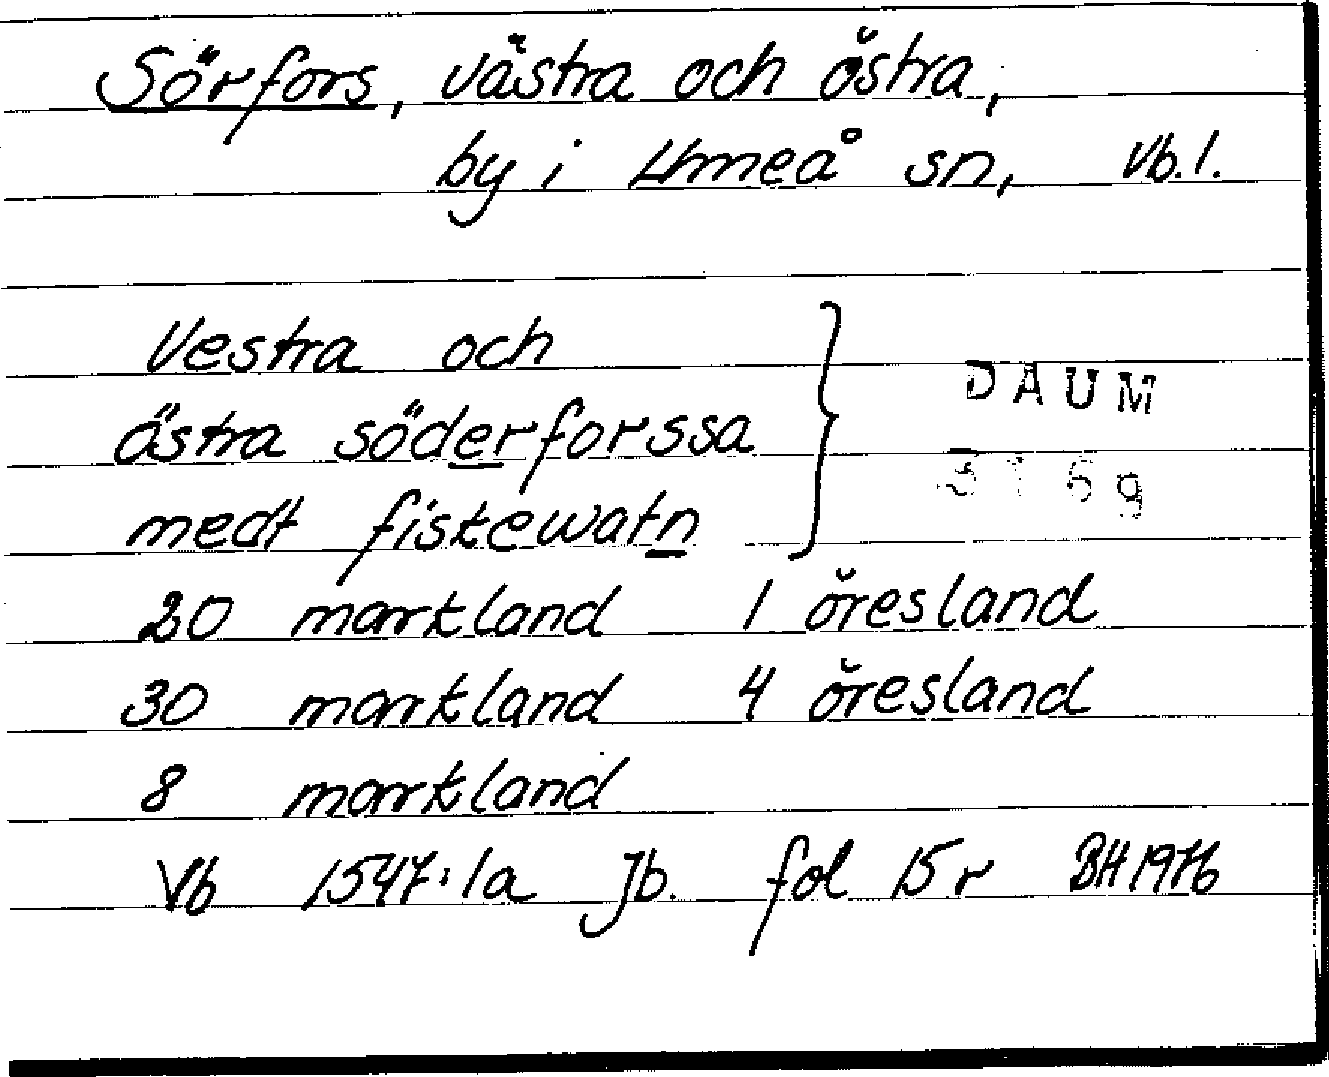 Sörfors, västra och östra,
by i Umeå sn, Vb.l.
Vestra och
östra söderforssa
medt fiskewatn
DAUM
3169
20 markland 1 öresland
30 markland 4 öresland
8 markland
Vb 1547:1a Jb. fol 15r BH 1976